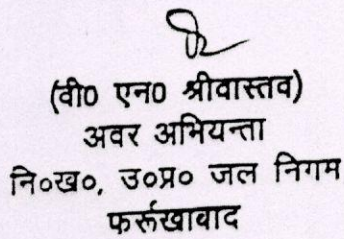 (वी0 एन0 श्रीवास्तव)
अवर अभियन्ता
नि०ख०, उ०प्र० जल निगम
फर्रूखावाद